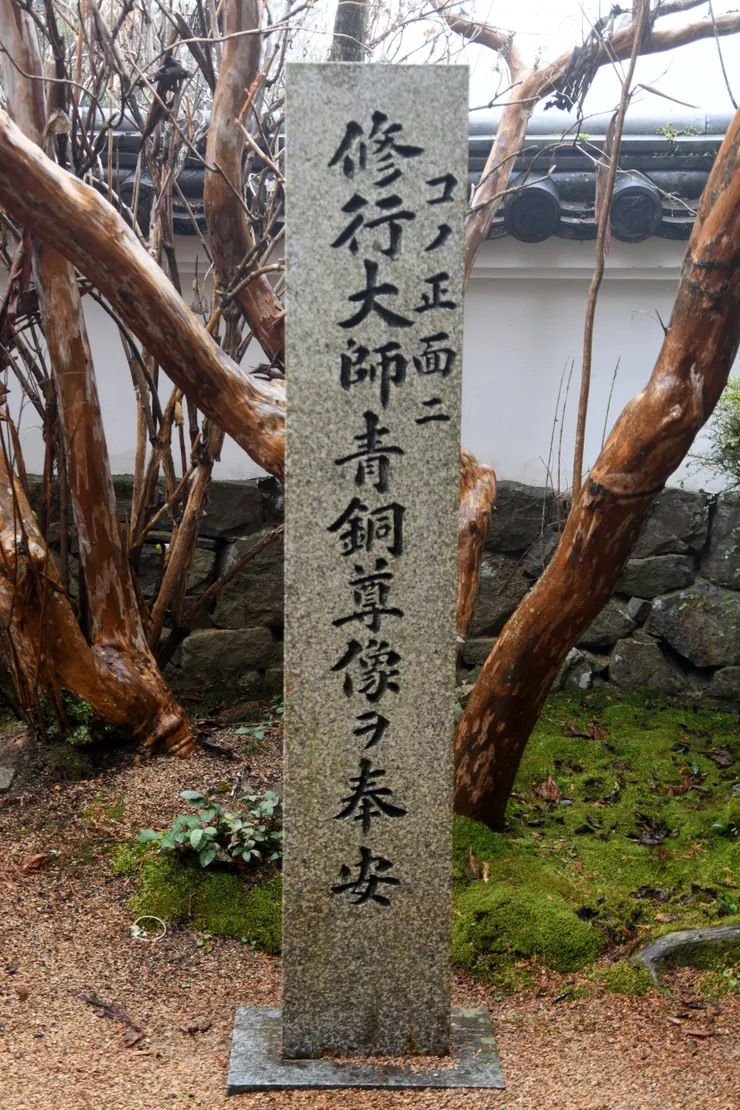 コノ正面ニ
修行大師青銅尊像ヲ奉安